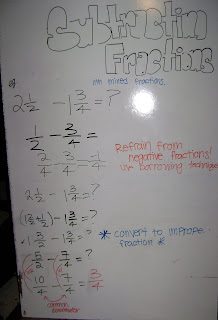 Subtractin
Fractions
mixed fractions.
2 1/2 - 1 3/4 = ?
1/2 - 3/4 =
2/4 - 3/4 = -1/4
Refrain from
negative fractions!
use borrowing technique
2 1/2 - 1 3/4 = ?
- 1 3/4 = ?
- 1 3/4 = ?
* convert to improper
fraction *
5/2 - 7/4 = ?
10/4 - 7/4 = 3/4
common
denominator